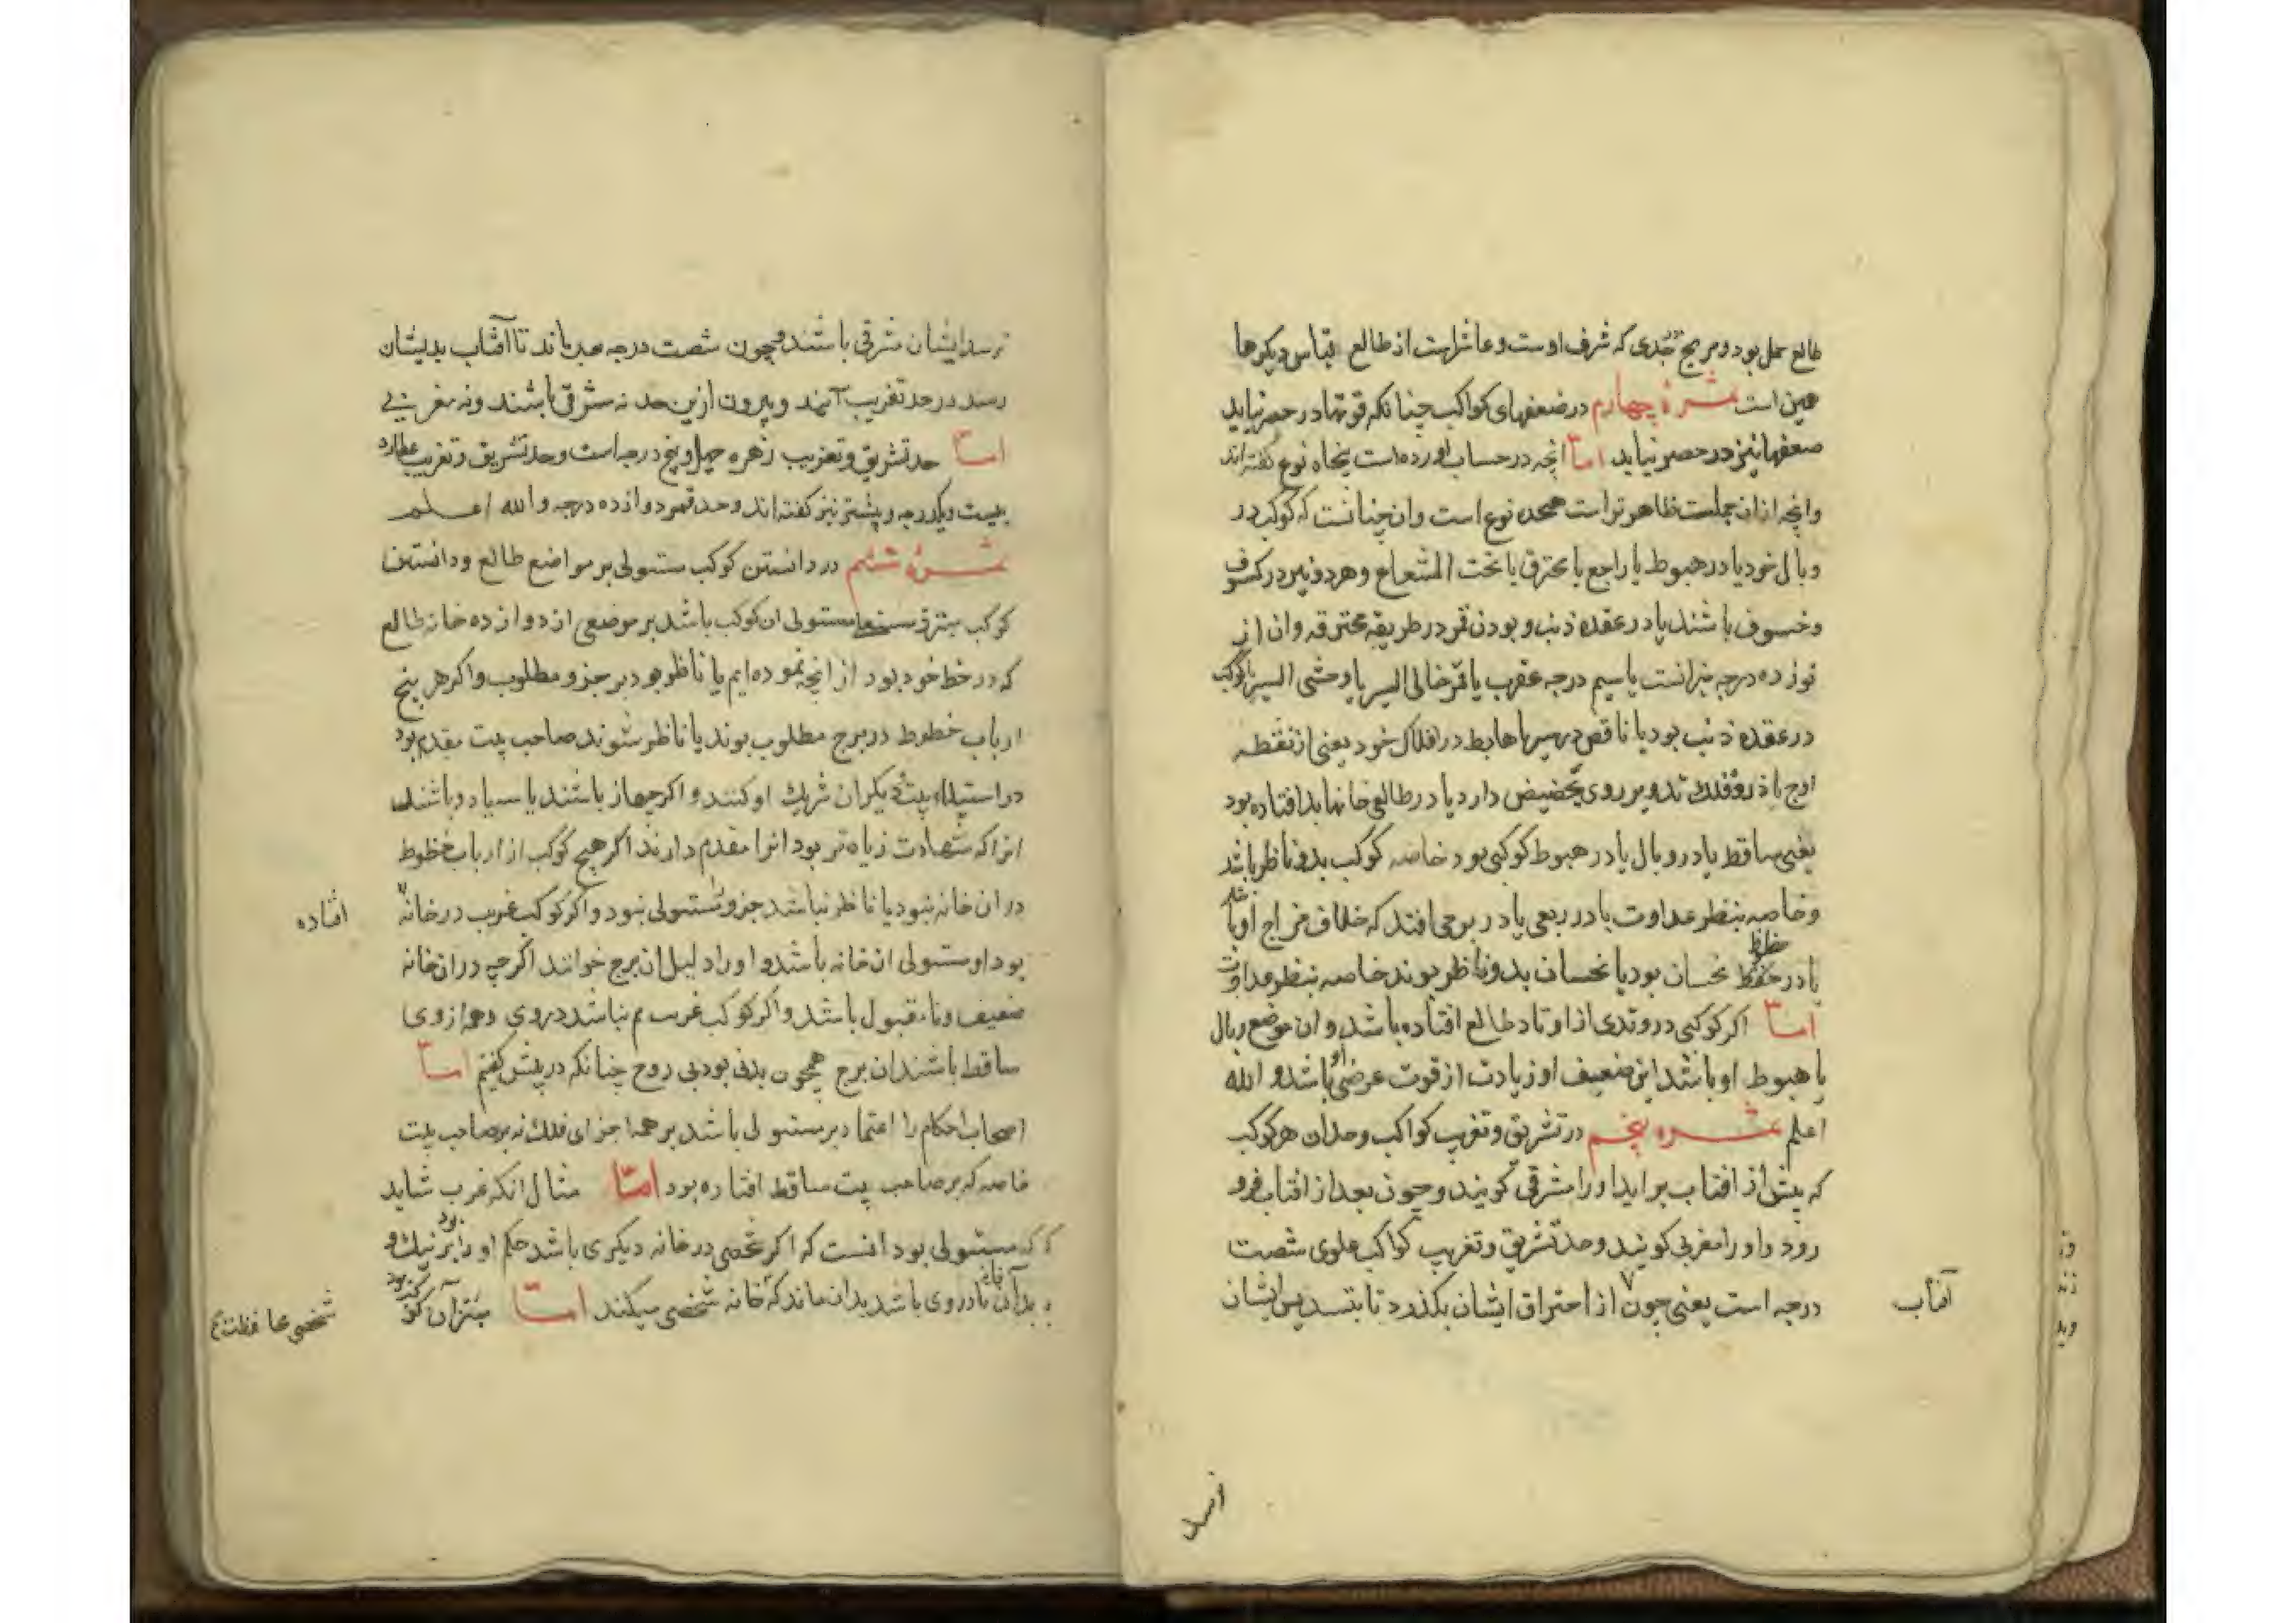 طالع حمل بود و مریخ بجدی که شرف اوست و عاشراست از طالع قیاس دیکرها
همین است ثمرهٔ چهارم در ضعفهای کواکب چنانکه قوتها در حصر نیاید
ضعفها نیز در حصر نیاید اما انچه در حساب اورده است پنجاه نوع کفته اند
وانچه ازان جملت ظاهر تراست هجده نوع است وان چنانست که کوکب در
وبال خود یا در هبوط یا راجع یا محترق یا تحت الشعاع و هردو نیر در کسوف
وخسوف باشند یا در عقده ذنب و بودن قمر در طریقه محترقه وان از
نوزده درجه میزانست یا سیم درجه عقرب یا قمر خالی السیر یا وحشی السیر یا کوکب
در عقده ذنب بود یا ناقص در سیر یا هابط در افلاک خود یعنی از نقطه
اوج یا ذروه فلک تدویر روی بحضیض دارد یا در طالع خانها بد افتاده بود
یعنی ساقط یا در وبال یا در هبوط کوکبی بود خاصه کوکب بدو ناظر باشد
وخاصه بنظر عداوت یا در ربعی یا در برجی افتد که خلاف مزاج او باشد
یا در حظوظ نحسان بود یا نحسان بدو ناظر بوند خاصه بنظر عداوت
اما اکر کوکبی در وتدی از اوتاد طالع افتاده باشد و ان موضع وبال
یا هبوط او باشد این ضعیف او زیادت از قوت عرضی او باشد و الله
اعلم ثمره پنجم در تشریق و تغریب کواکب وحدان هر کوکب
که پیش از افتاب براید اورا مشرقی کویند و چون بعد از افتاب فرو
رود و اورا مغربی کویند وحد تشریق و تغریب کواکب علوی شصت
درجه است یعنی چون از احتراق ایشان بکذرد تا بتسدیس ایشان
آفتاب
نرسد
نرسد ایشان شرقی باشند و چون شصت درجه بماند تا آفتاب بدیشان
رسد در حد تغریب آیند و بیرون ازین حد نه شرقی باشند ونه مغربی
اما حد تشریق و تغریب زهره چهل و پنج درجه است وحد تشریق و تغریب عطارد
بیست ویکدرجه و پیشتر نیز کفته اند وحد قمر دوازده درجه و الله اعلم
ثمرهٔ ششم در دانستن کوکب مستولی بر مواضع طالع و دانستن
کوکب مستولی ان کوکب باشد بر موضعی از دوازده خانه طالع
که در خط خود بود از انچه نموده ایم یا ناظر بود بر جزو مطلوب و اکر هر پنج
ارباب خطوط در برج مطلوب بوند یا ناظر شوند صاحب بیت مقدم بود
در استیلاء بیت و دیکران شریک او کنند و اکر چهار باشند یا سه یا دو باشند
انرا که شهادت زیاده تر بود انرا مقدم دارند اکر هیچ کوکب از ارباب خطوط
در ان خانه نبود یا ناظر نباشد جزو مستولی نبود و اکر کوکب غریب در خانه
افتاده
بود او مستولی ان خانه باشد و اورا دلیل ان برج خوانند اکر چه در ان خانه
ضعیف و نامقبول باشد و اکر کوکب غریب هم نباشد در وی و همه از وی
ساقط باشند ان برج همچون بدنی بود بی روح چنانکه در پیش کفتم اما
اصحاب احکام را اعتماد بر مستولی باشد بر همه اجزای فلک نه بر صاحب بیت
خاصه که بر صاحب بیت ساقط افتاده بود اما مثال انکه غریب شاید
که مستولی بود انست که اکر شخصی در خانه دیکری باشد حکم اورا بود بر نیک و
بد آن خانه تا در وی باشد بدان ماند که خانه شخصی میکند اما